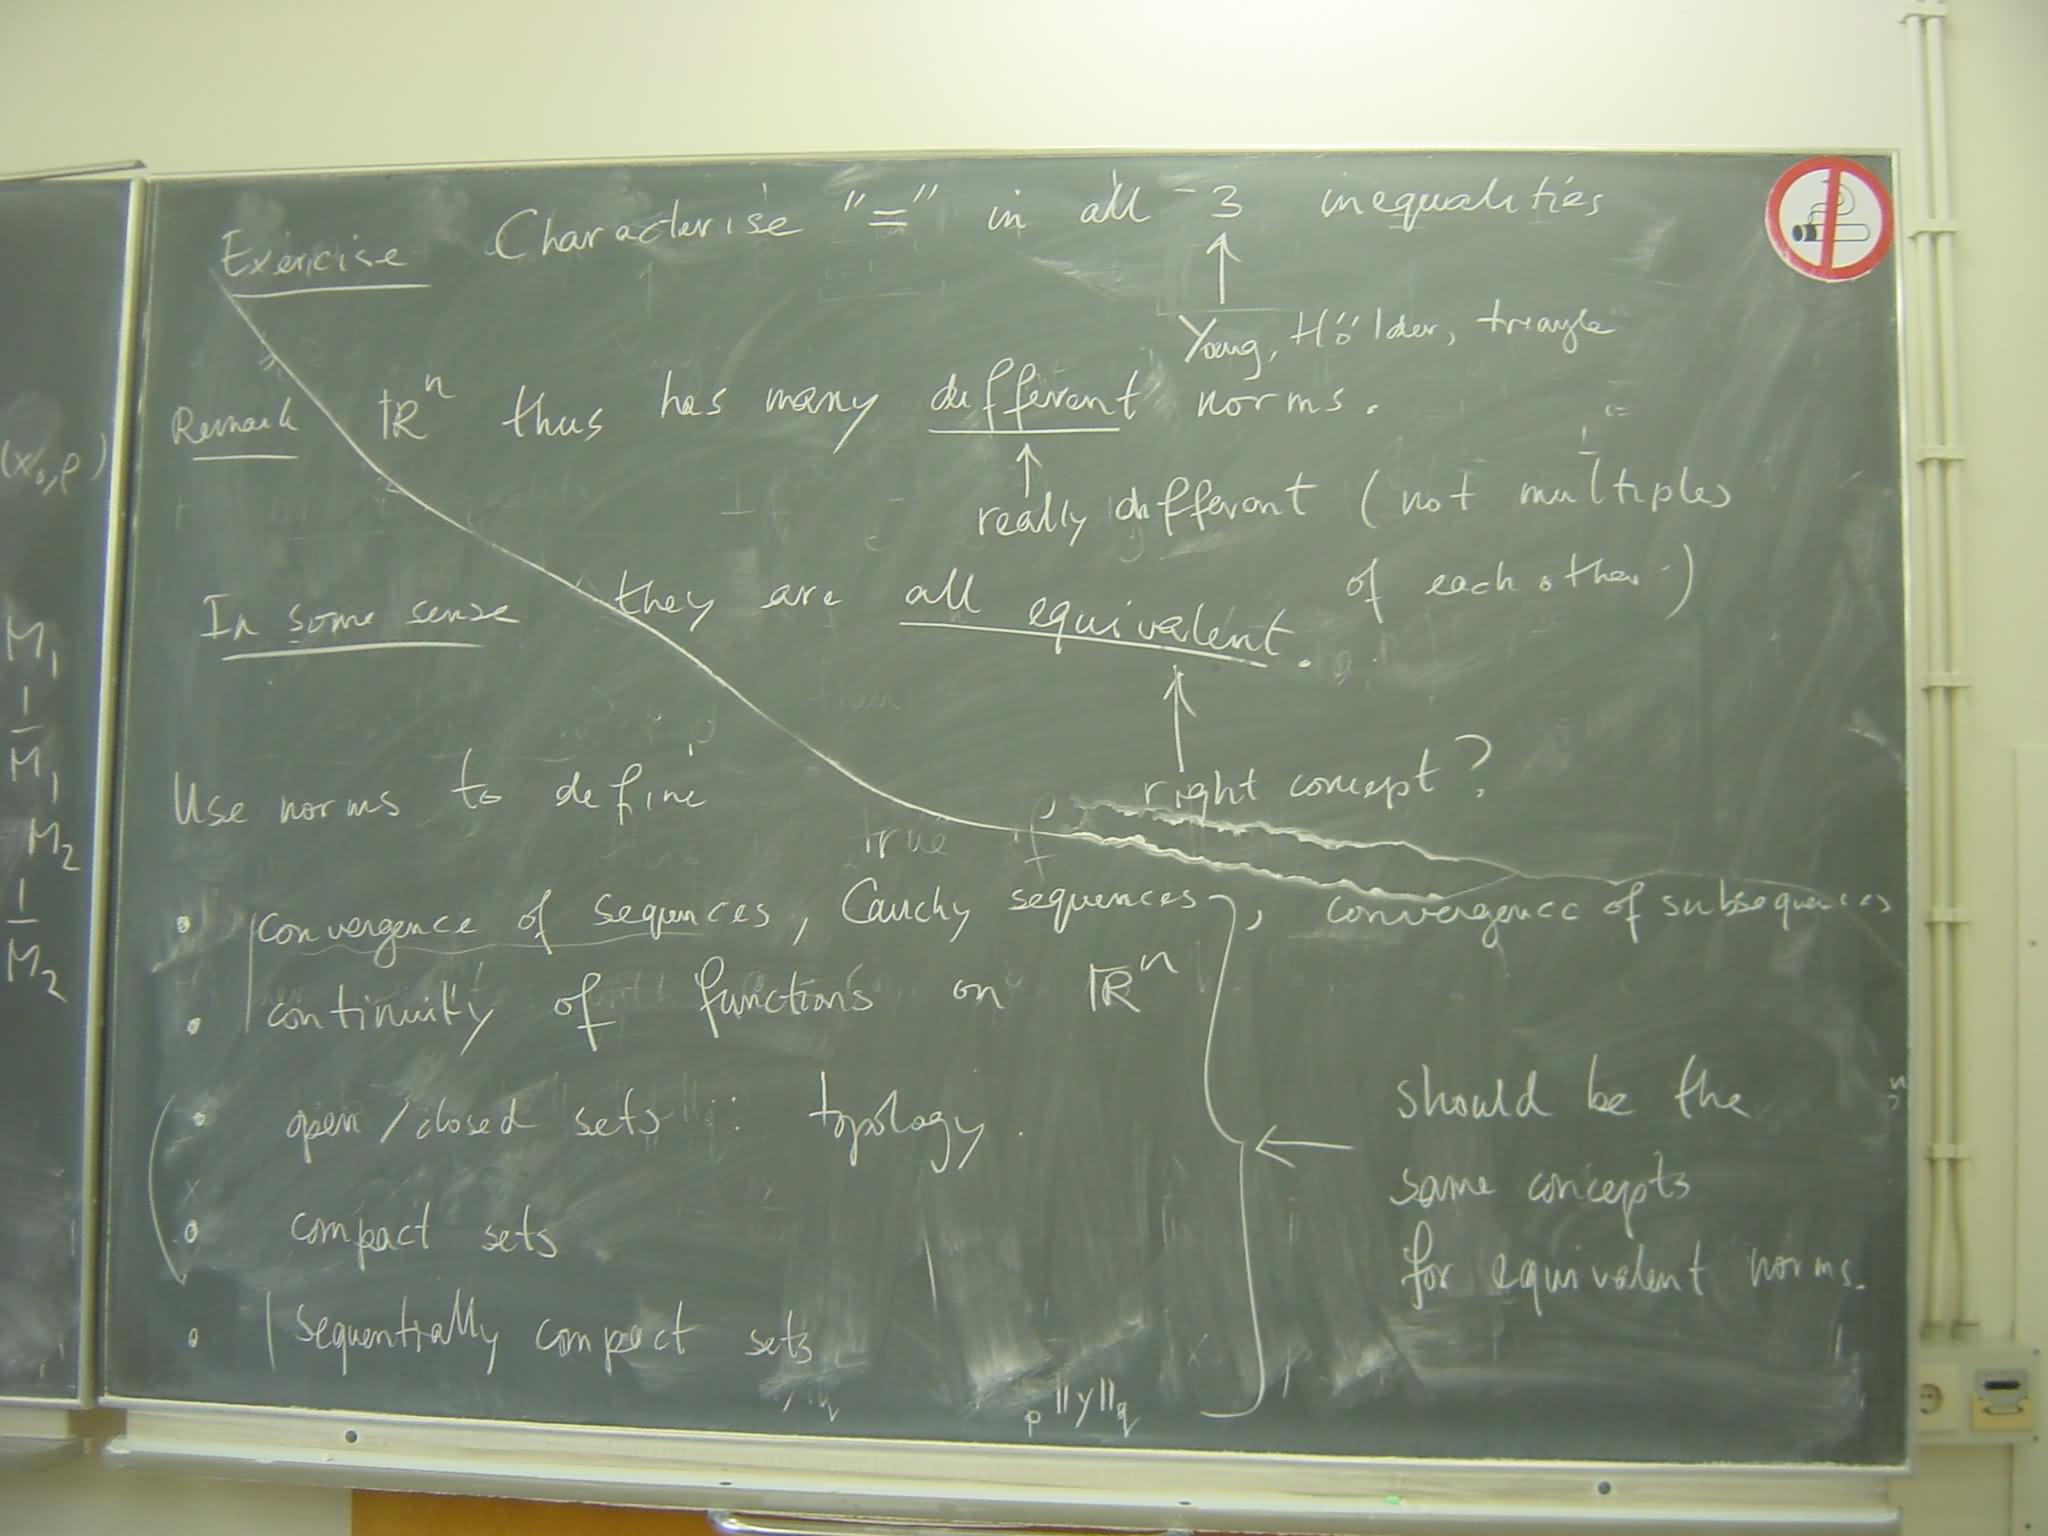 Exercise Characterise "=" in all 3 inequalities
Young, Hölder, triangle
Remark ℝⁿ thus has many different norms.
really different (not multiples
of each other.)
In some sense they are all equivalent.
right concept?
Use norms to define
true if
• convergence of sequences, Cauchy sequences, convergence of subsequences
• continuity of functions on ℝⁿ
• open/closed sets : topology.
• compact sets
• sequentially compact sets
should be the
same concepts
for equivalent norms.
p ||y||q
(x₀,ρ)
M₁
1
M₁
M₂
1
M₂